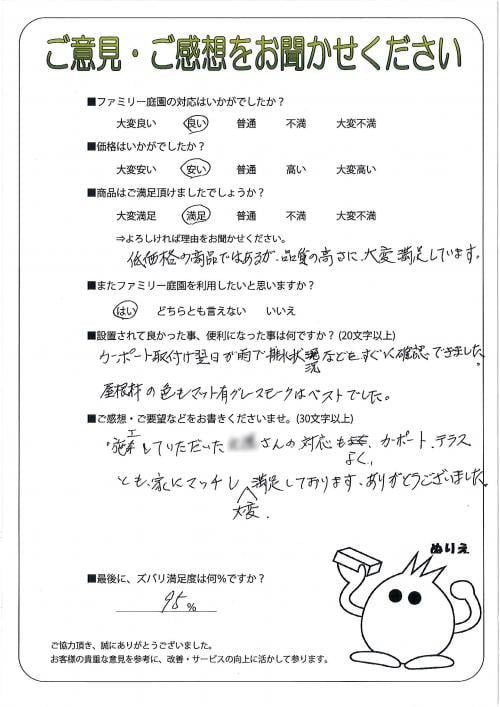 ご意見・ご感想をお聞かせください
■ファミリー庭園の対応はいかがでしたか？
大変良い 良い 普通 不満 大変不満
■価格はいかがでしたか？
大変安い 安い 普通 高い 大変高い
■商品はご満足頂けましたでしょうか？
大変満足 満足 普通 不満 大変不満
⇒よろしければ理由をお聞かせください。
低価格の商品ではあるが、品質の高さに、大変満足しています。
■またファミリー庭園を利用したいと思いますか？
はい どちらとも言えない いいえ
■設置されて良かった事、便利になった事は何ですか？(20文字以上)
カーポート取付け翌日が雨で排水状況などもすぐに確認できました。
屋根材の色もマット有グレースモークはベストでした。
■ご感想・ご要望などをお書きくださいませ。(30文字以上)
施工していただいた さんの対応もよく、カーポート、テラス
とも、家にマッチし大変満足しております、ありがとうございました。
ぬりえ
■最後に、ズバリ満足度は何％ですか？
95 ％
ご協力頂き、誠にありがとうございました。
お客様の貴重な意見を参考に、改善・サービスの向上に活かして参ります。